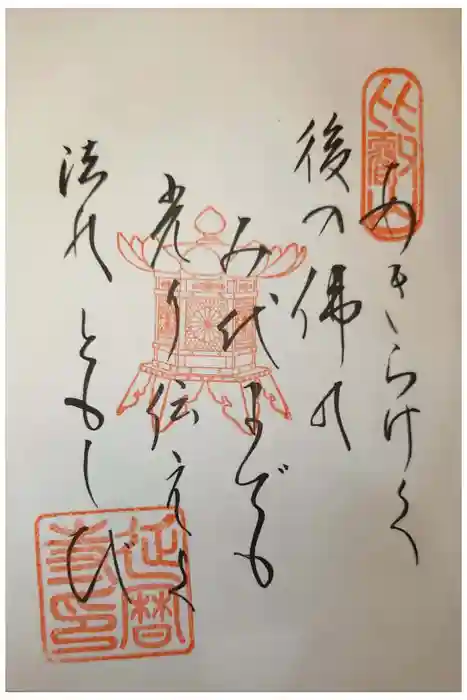 比叡山
あきらけく
後の佛の
み代までも
光り伝えよ
法のともしび
延暦
寺印